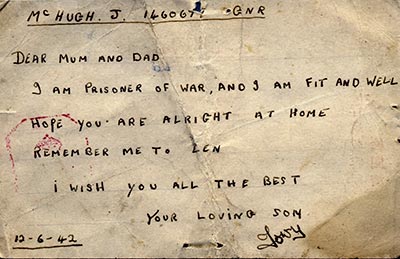 McHUGH. J. 1460677 GNR
DEAR MUM AND DAD
I AM PRISONER OF WAR, AND I AM FIT AND WELL
HOPE YOU ARE ALRIGHT AT HOME
REMEMBER ME TO LEN
I WISH YOU ALL THE BEST
YOUR LOVING SON
12-6-42